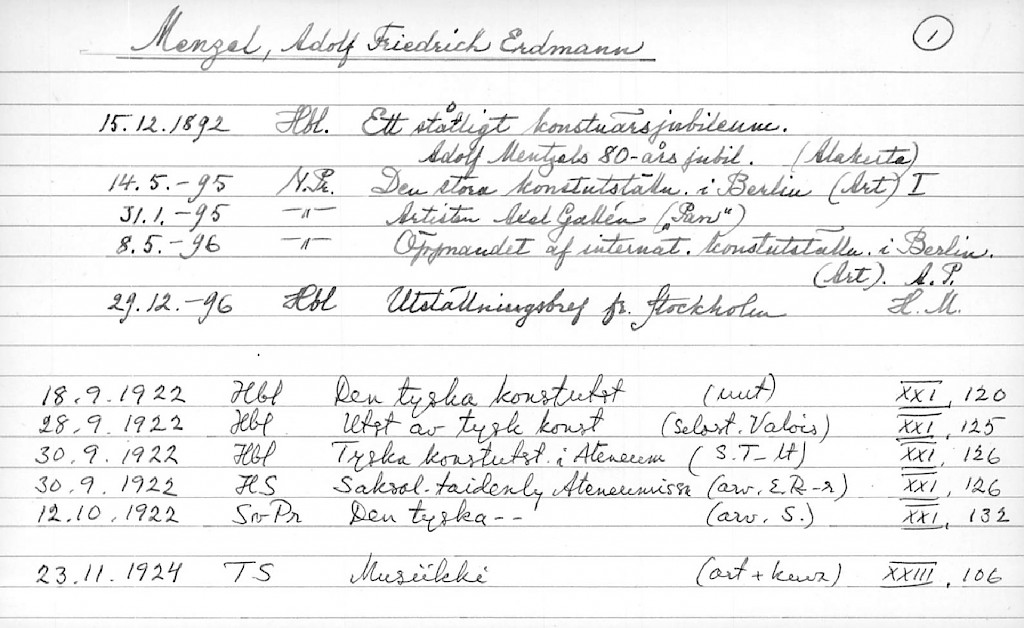 Menzel, Adolf Friedrich Erdmann 1
15.12.1892 Hbl. Ett ståtligt konstnärsjubileum.
Adolf Mentzels 80-års jubil. (Alakerta)
14.5.-95 N.Pr. Den stora konstutställn. i Berlin (Art) I
31.1.-95 -"- Artisten Axel Gallén ("Pan")
8.5.-96 -"- Öppnandet af internat. konstutställn. i Berlin.
(Art). A.P.
29.12.-96 Hbl Utställningsbref fr. Stockholm H.M.
18.9.1922 Hbl Den tyska konstutst (uut) XXI, 120
28.9.1922 Hbl Utst av tysk konst (selost. Valois) XXI, 125
30.9.1922 Hbl Tyska konstutst. i Ateneum (S.T-lt) XXI, 126
30.9.1922 HS Saksal. taidenly Ateneumissa (arv. E.R-r) XXI, 126
12.10.1922 SvPr Den tyska -- (arv. S.) XXI, 132
23.11.1924 TS Musiikki (art + kuva) XXIII, 106